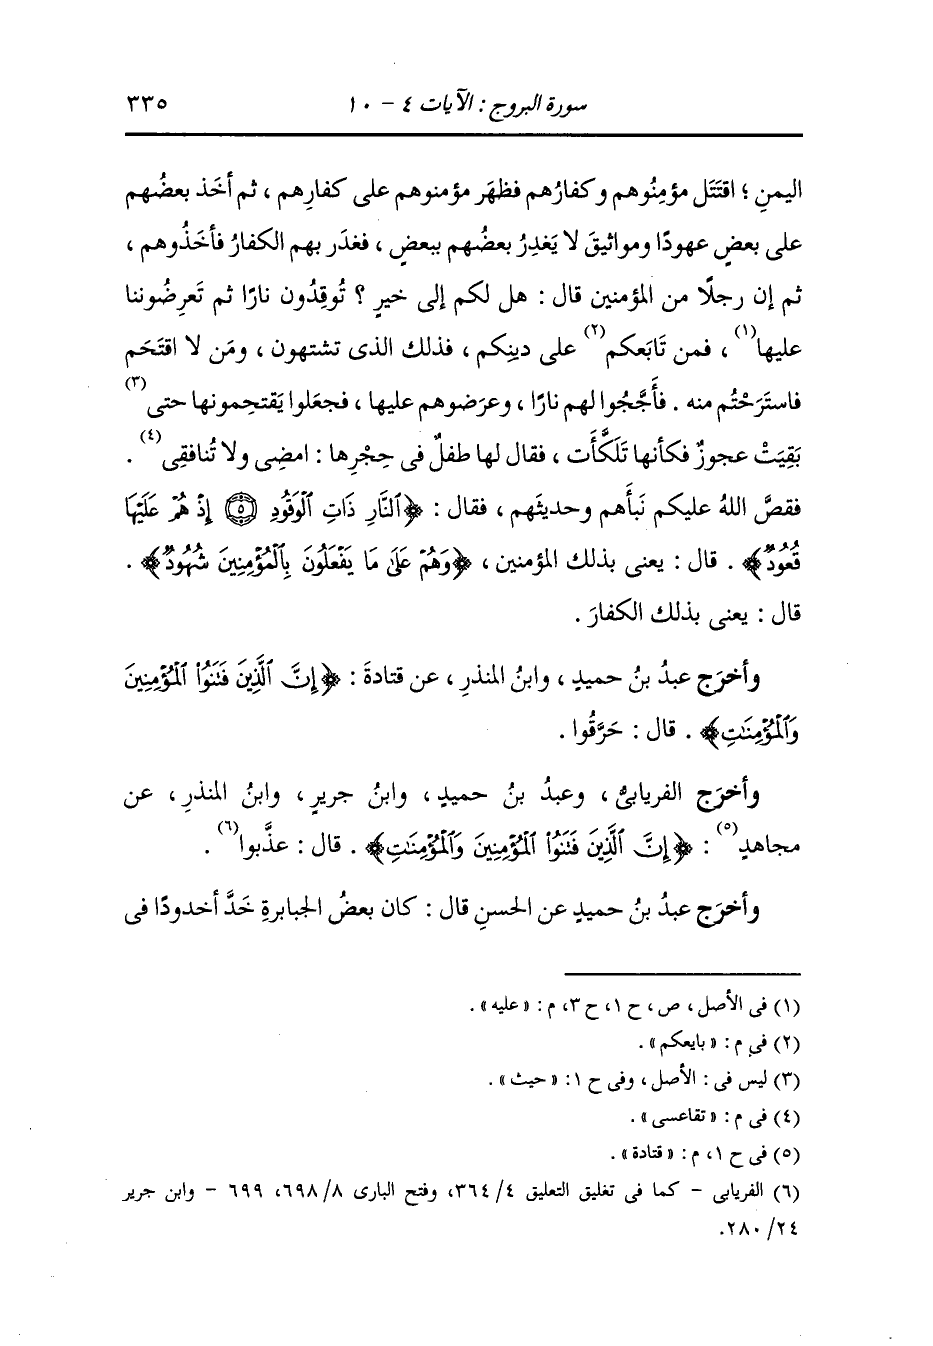 سورة البروج : الآيات ٤ - ١٠ ٣٣٥
اليمنِ ؛ اقتَتَل مؤمِنُوهم وكفارُهم فظهَر مؤمنوهم على كفارِهم ، ثم أخَذ بعضُهم
على بعضٍ عهودًا ومواثيقَ لا يَغدِرُ بعضُهم ببعضٍ ، فغدَر بهم الكفارُ فأخَذُوهم ،
ثم إن رجلًا من المؤمنين قال : هل لكم إلى خيرٍ ؟ تُوقِدُون نارًا ثم تَعرِضُوننا
عليها(١) ، فمن تَابَعكم(٢) على دينِكم ، فذلك الذى تشتهون ، ومَن لا اقتَحَم
فاستَرَحْتُم منه . فأَجَّجُوا لهم نارًا ، وعرَضوهم عليها ، فجعَلوا يَقتحِمونها حتى(٣)
بَقِيَتْ عجوزٌ فكأنها تَلَكَّأَت ، فقال لها طفلٌ فى حِجْرِها : امضِى ولا تُنافقِى(٤) .
فقصَّ اللهُ عليكم نَبأَهم وحديثَهم ، فقال : ﴿ٱلنَّارِ ذَاتِ ٱلْوَقُودِ ۝٥ إِذْ هُمْ عَلَيْهَا
قُعُودٌ﴾ . قال : يعنى بذلك المؤمنين ، ﴿وَهُمْ عَلَىٰ مَا يَفْعَلُونَ بِٱلْمُؤْمِنِينَ شُهُودٌ﴾ .
قال : يعنى بذلك الكفارَ .
وأخرَج عبدُ بنُ حميدٍ ، وابنُ المنذرِ ، عن قتادةَ : ﴿إِنَّ ٱلَّذِينَ فَتَنُوا۟ ٱلْمُؤْمِنِينَ
وَٱلْمُؤْمِنَـٰتِ﴾ . قال : حَرَّقُوا .
وأخرَج الفريابىُّ ، وعبدُ بنُ حميدٍ ، وابنُ جريرٍ ، وابنُ المنذرِ ، عن
مجاهدٍ(٥) : ﴿إِنَّ ٱلَّذِينَ فَتَنُوا۟ ٱلْمُؤْمِنِينَ وَٱلْمُؤْمِنَـٰتِ﴾ . قال : عذَّبوا(٦) .
وأخرَج عبدُ بنُ حميدٍ عن الحسنِ قال : كان بعضُ الجبابرةِ خَدَّ أخدودًا فى
(١) فى الأصل ، ص ، ح ١، ح ٣، م : « عليه » .
(٢) فى م : « بايعكم » .
(٣) ليس فى : الأصل ، وفى ح ١: « حيث » .
(٤) فى م : « تقاعسى » .
(٥) فى ح ١، م : « قتادة » .
(٦) الفريابى - كما فى تغليق التعليق ٤/ ٣٦٤، وفتح البارى ٨/ ٦٩٨، ٦٩٩ - وابن جرير
٢٤/ ٢٨٠.